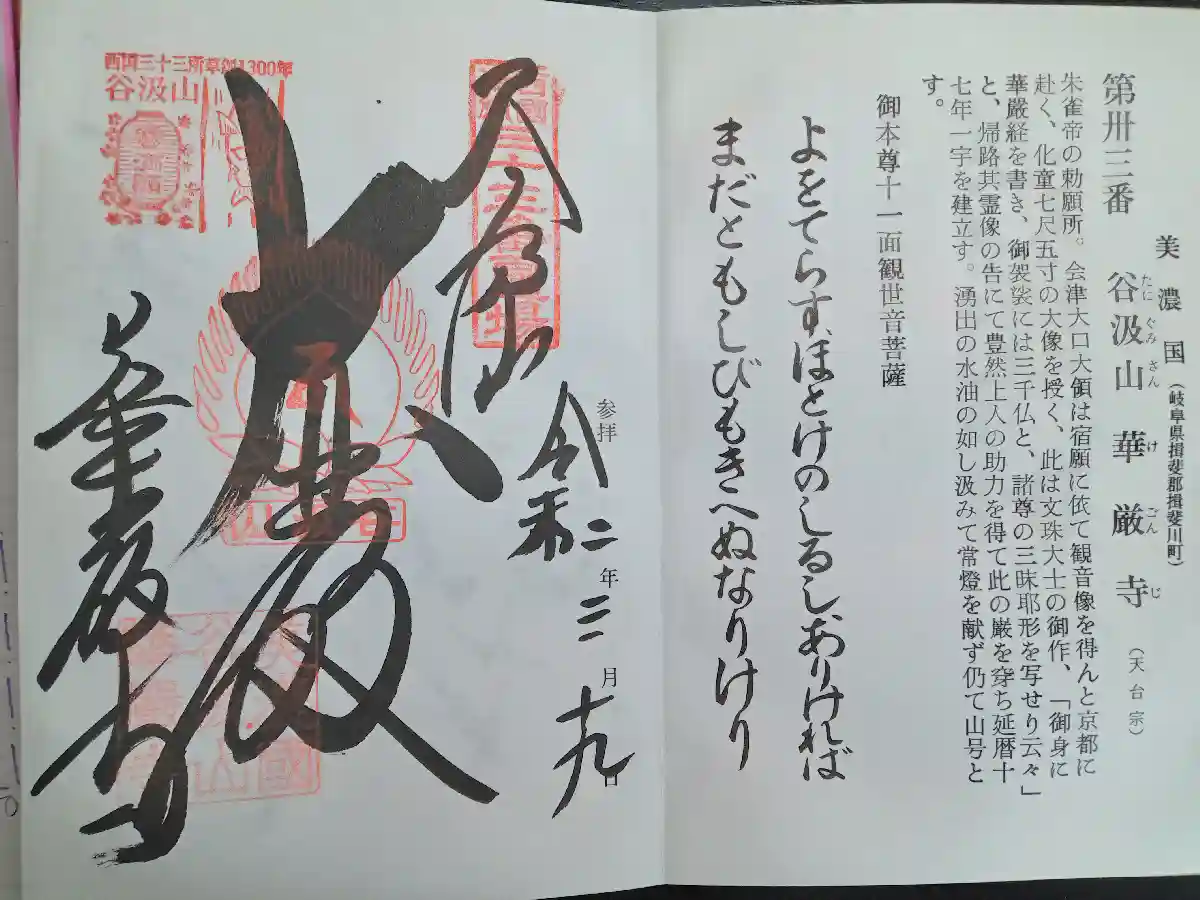 第卅三番
美濃国(岐阜県揖斐郡揖斐川町)
谷汲山 華厳寺(天台宗)
たに ぐみ さん け ごん じ
朱雀帝の勅願所。会津大口大領は宿願に依て観音像を得んと京都に
赴く、化童七尺五寸の大像を授く、此は文珠大士の御作、「御身に
華厳経を書き、御袈裟には三千仏と、諸尊の三昧耶形を写せり云々」
と、帰路其霊像の告にて豊然上人の助力を得て此の厳を穿ち延暦十
七年一宇を建立す。湧出の水油の如し汲みて常燈を献ず仍て山号と
す。
御本尊十一面観世音菩薩
よをてらす、ほとけのしるし、ありければ
まだともしびもきへぬなりけり
参拝
令和二年三月十九日
華厳寺
西国三十三所草創1300年
谷汲山